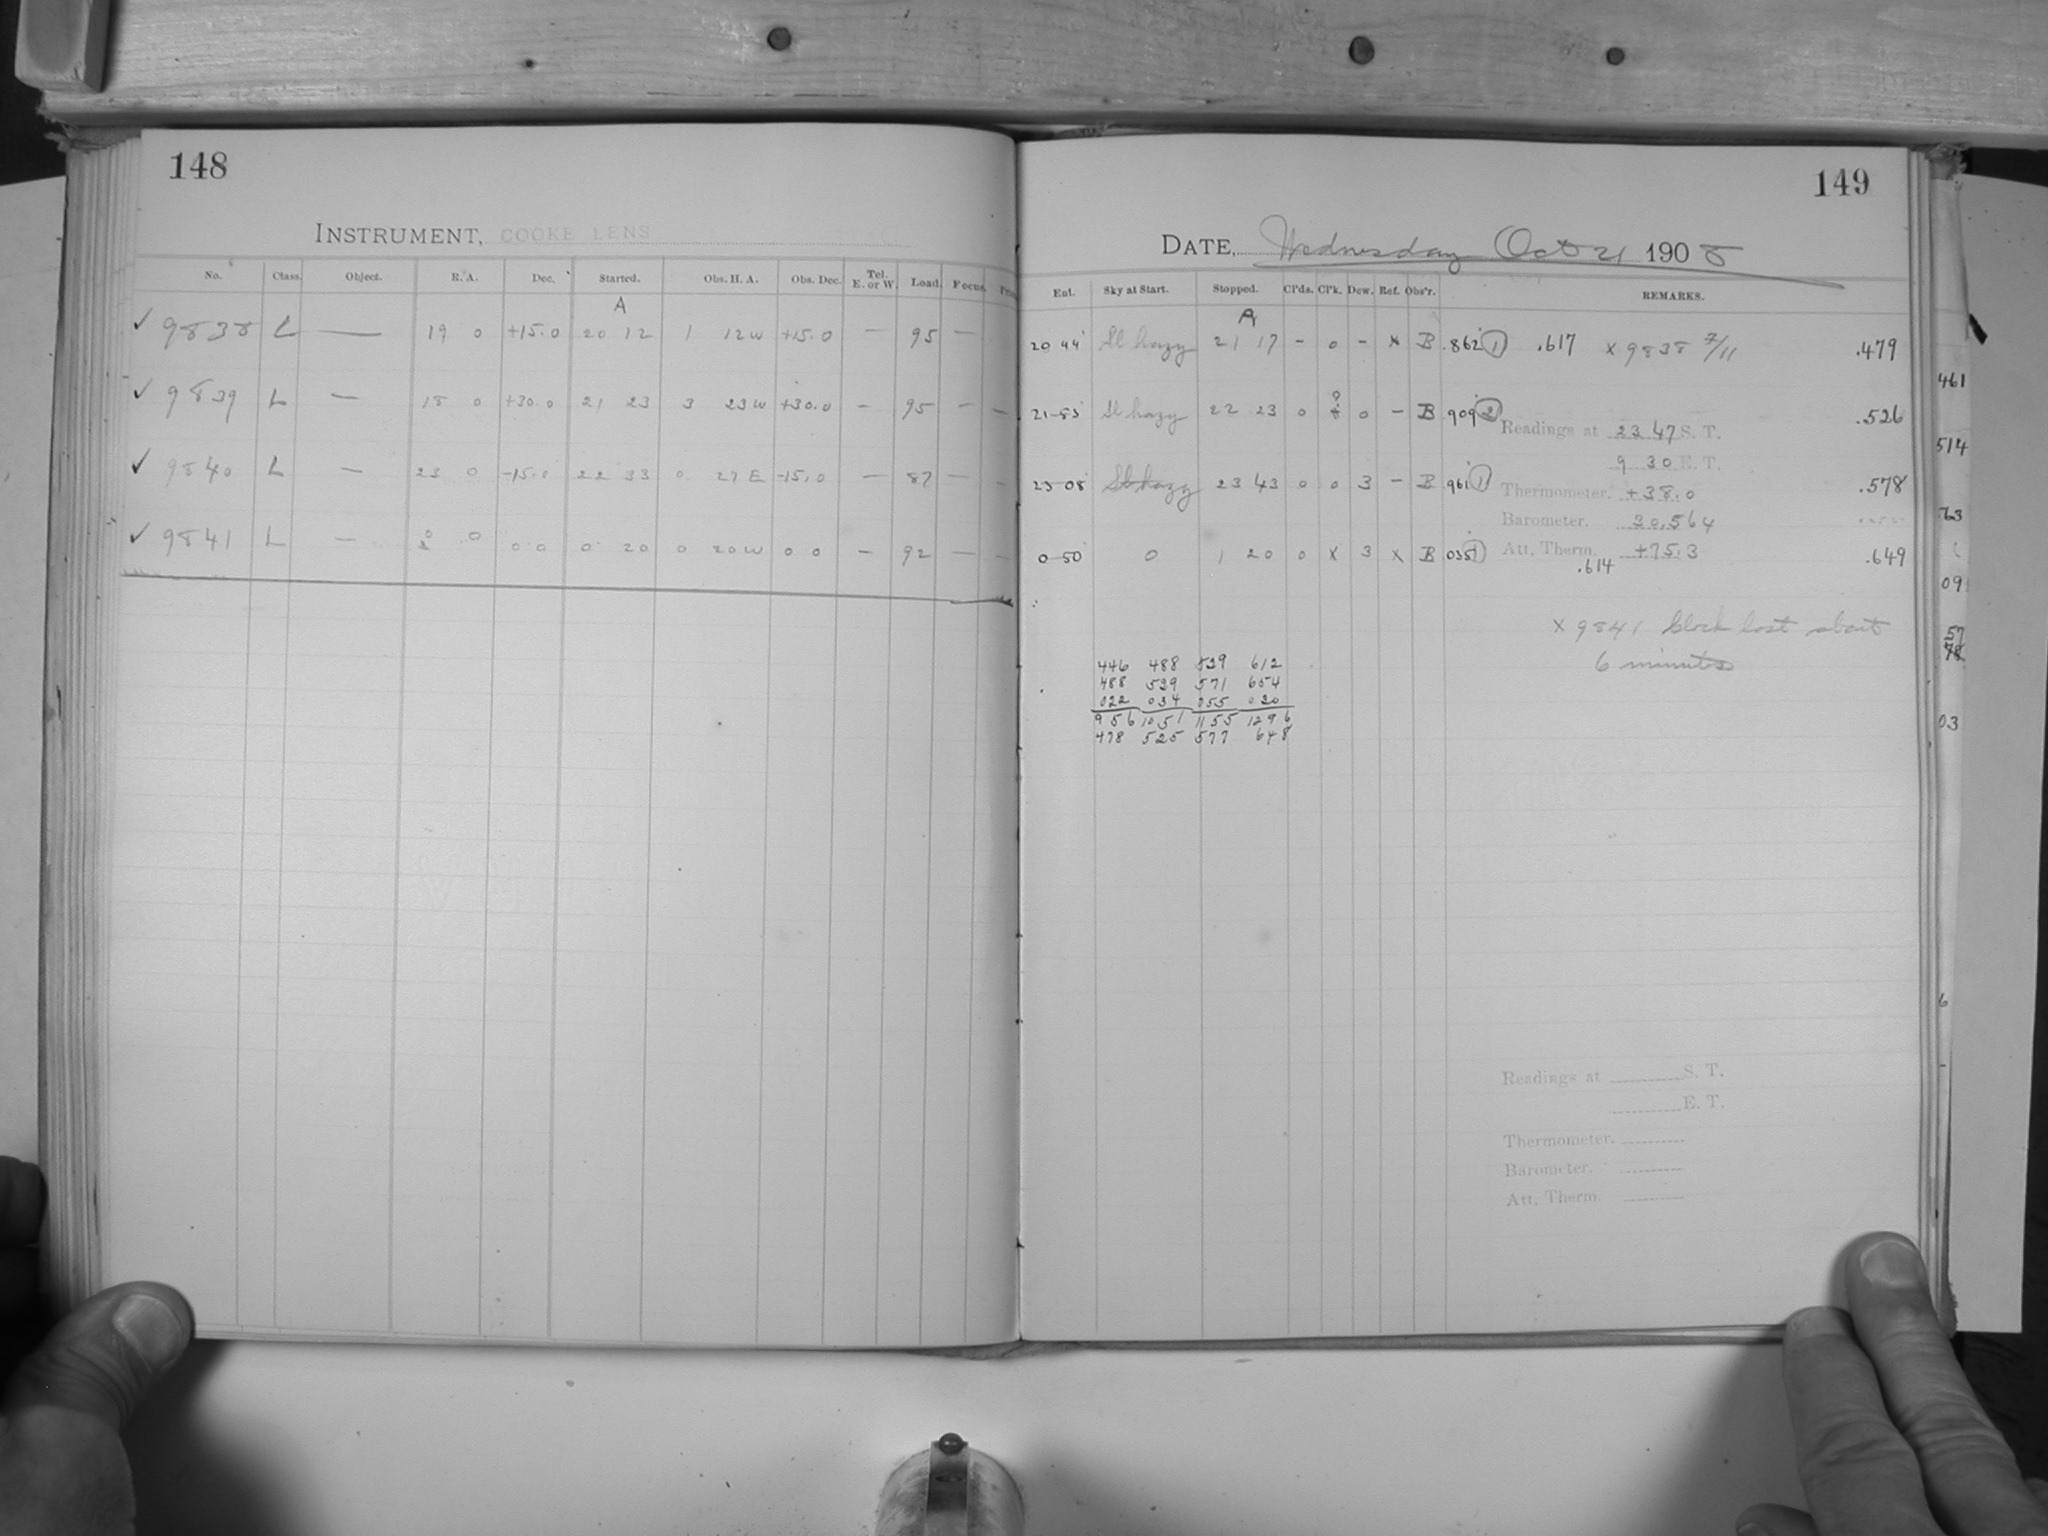 148
INSTRUMENT, COOKE LENS
No. Class. Object. R. A. Dec. Started. Obs. H. A. Obs. Dec. Tel. E. or W. Load. Focus.
A
✓ 9838 L — 19 0 +15.0 20 12 1 12 W +15.0 — 95 —
✓ 9839 L — 18 0 +30.0 21 23 3 23 W +30.0 — 95 — —
✓ 9840 L — 23 0 -15.0 22 33 0 27 E -15.0 — 87 — —
✓ 9841 L — 0 0 0 0 0 20 0 20 W 0 0 — 92 — —
149
DATE, Wednesday Oct 21 1908
Ent. Sky at Start. Stopped. Cl'ds. Cl'k. Dew. Ref. Obs'r. REMARKS.
A
20 44 Sl hazy 21 17 – 0 – x B .862 1 .617 x 9838 7/11 .479
21 53 Sl hazy 22 23 0 0 – B .909 2 .526
Readings at 23 47 S. T.
9 30 E. T.
23 08 Sl hazy 23 43 0 0 3 – B 961 1 .578
Thermometer. +38.0
Barometer. 30.564
0 50 0 1 20 0 x 3 x B 035 1 .649
Att. Therm. +75.3
.614
x 9841 Clock lost about
6 minutes
446 488 529 612
488 529 571 654
022 034 055 030
956 1051 1155 1296
478 525 577 648
Readings at S. T.
E. T.
Thermometer.
Barometer.
Att. Therm.
461
514
63
09
57
78
03
6